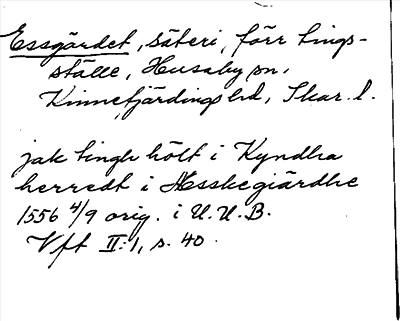 Essgärdet, säteri, förr tings-
ställe, Husaby sn,
Kinnefjärdings hd, Skar. l.
jak tingh hölt i Kyndha
herredt i Hesskegiärdhe
1556 4/9 orig. i U.U.B.
Vft II:1, s. 40.